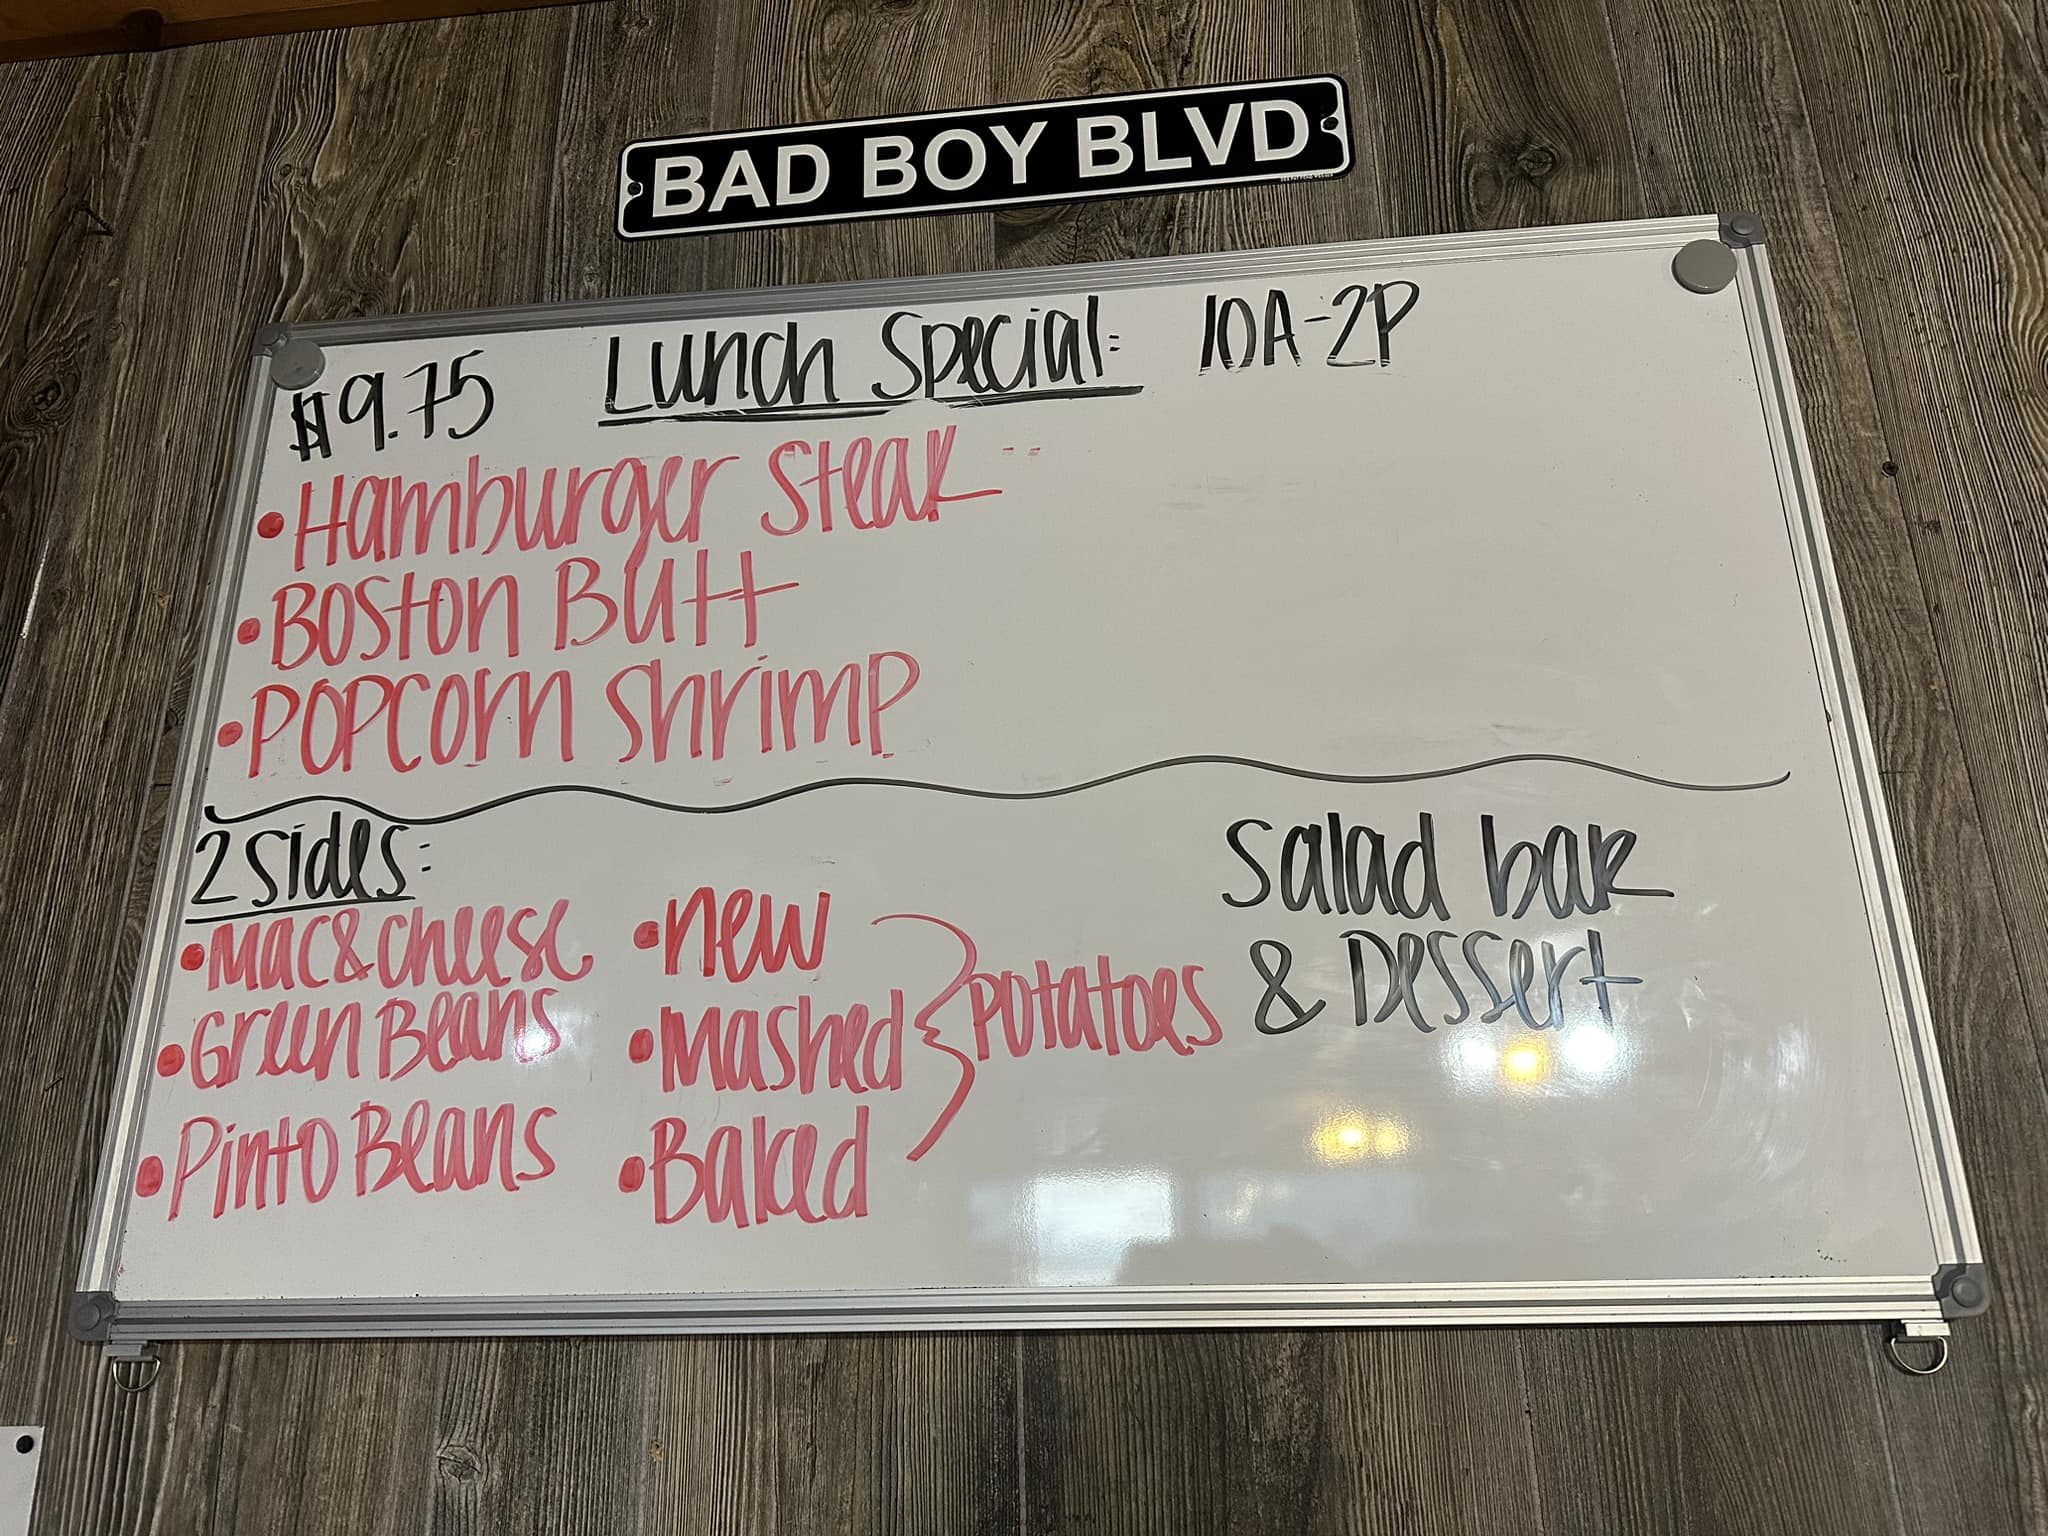 BAD BOY BLVD
$9.75 Lunch Special: 10A-2P
• Hamburger Steak
• Boston Butt
• Popcorn Shrimp
2 Sides:
• Mac & Cheese
• Green Beans
• Pinto Beans
• New
• Mashed } Potatoes
• Baked
Salad bar
& Dessert